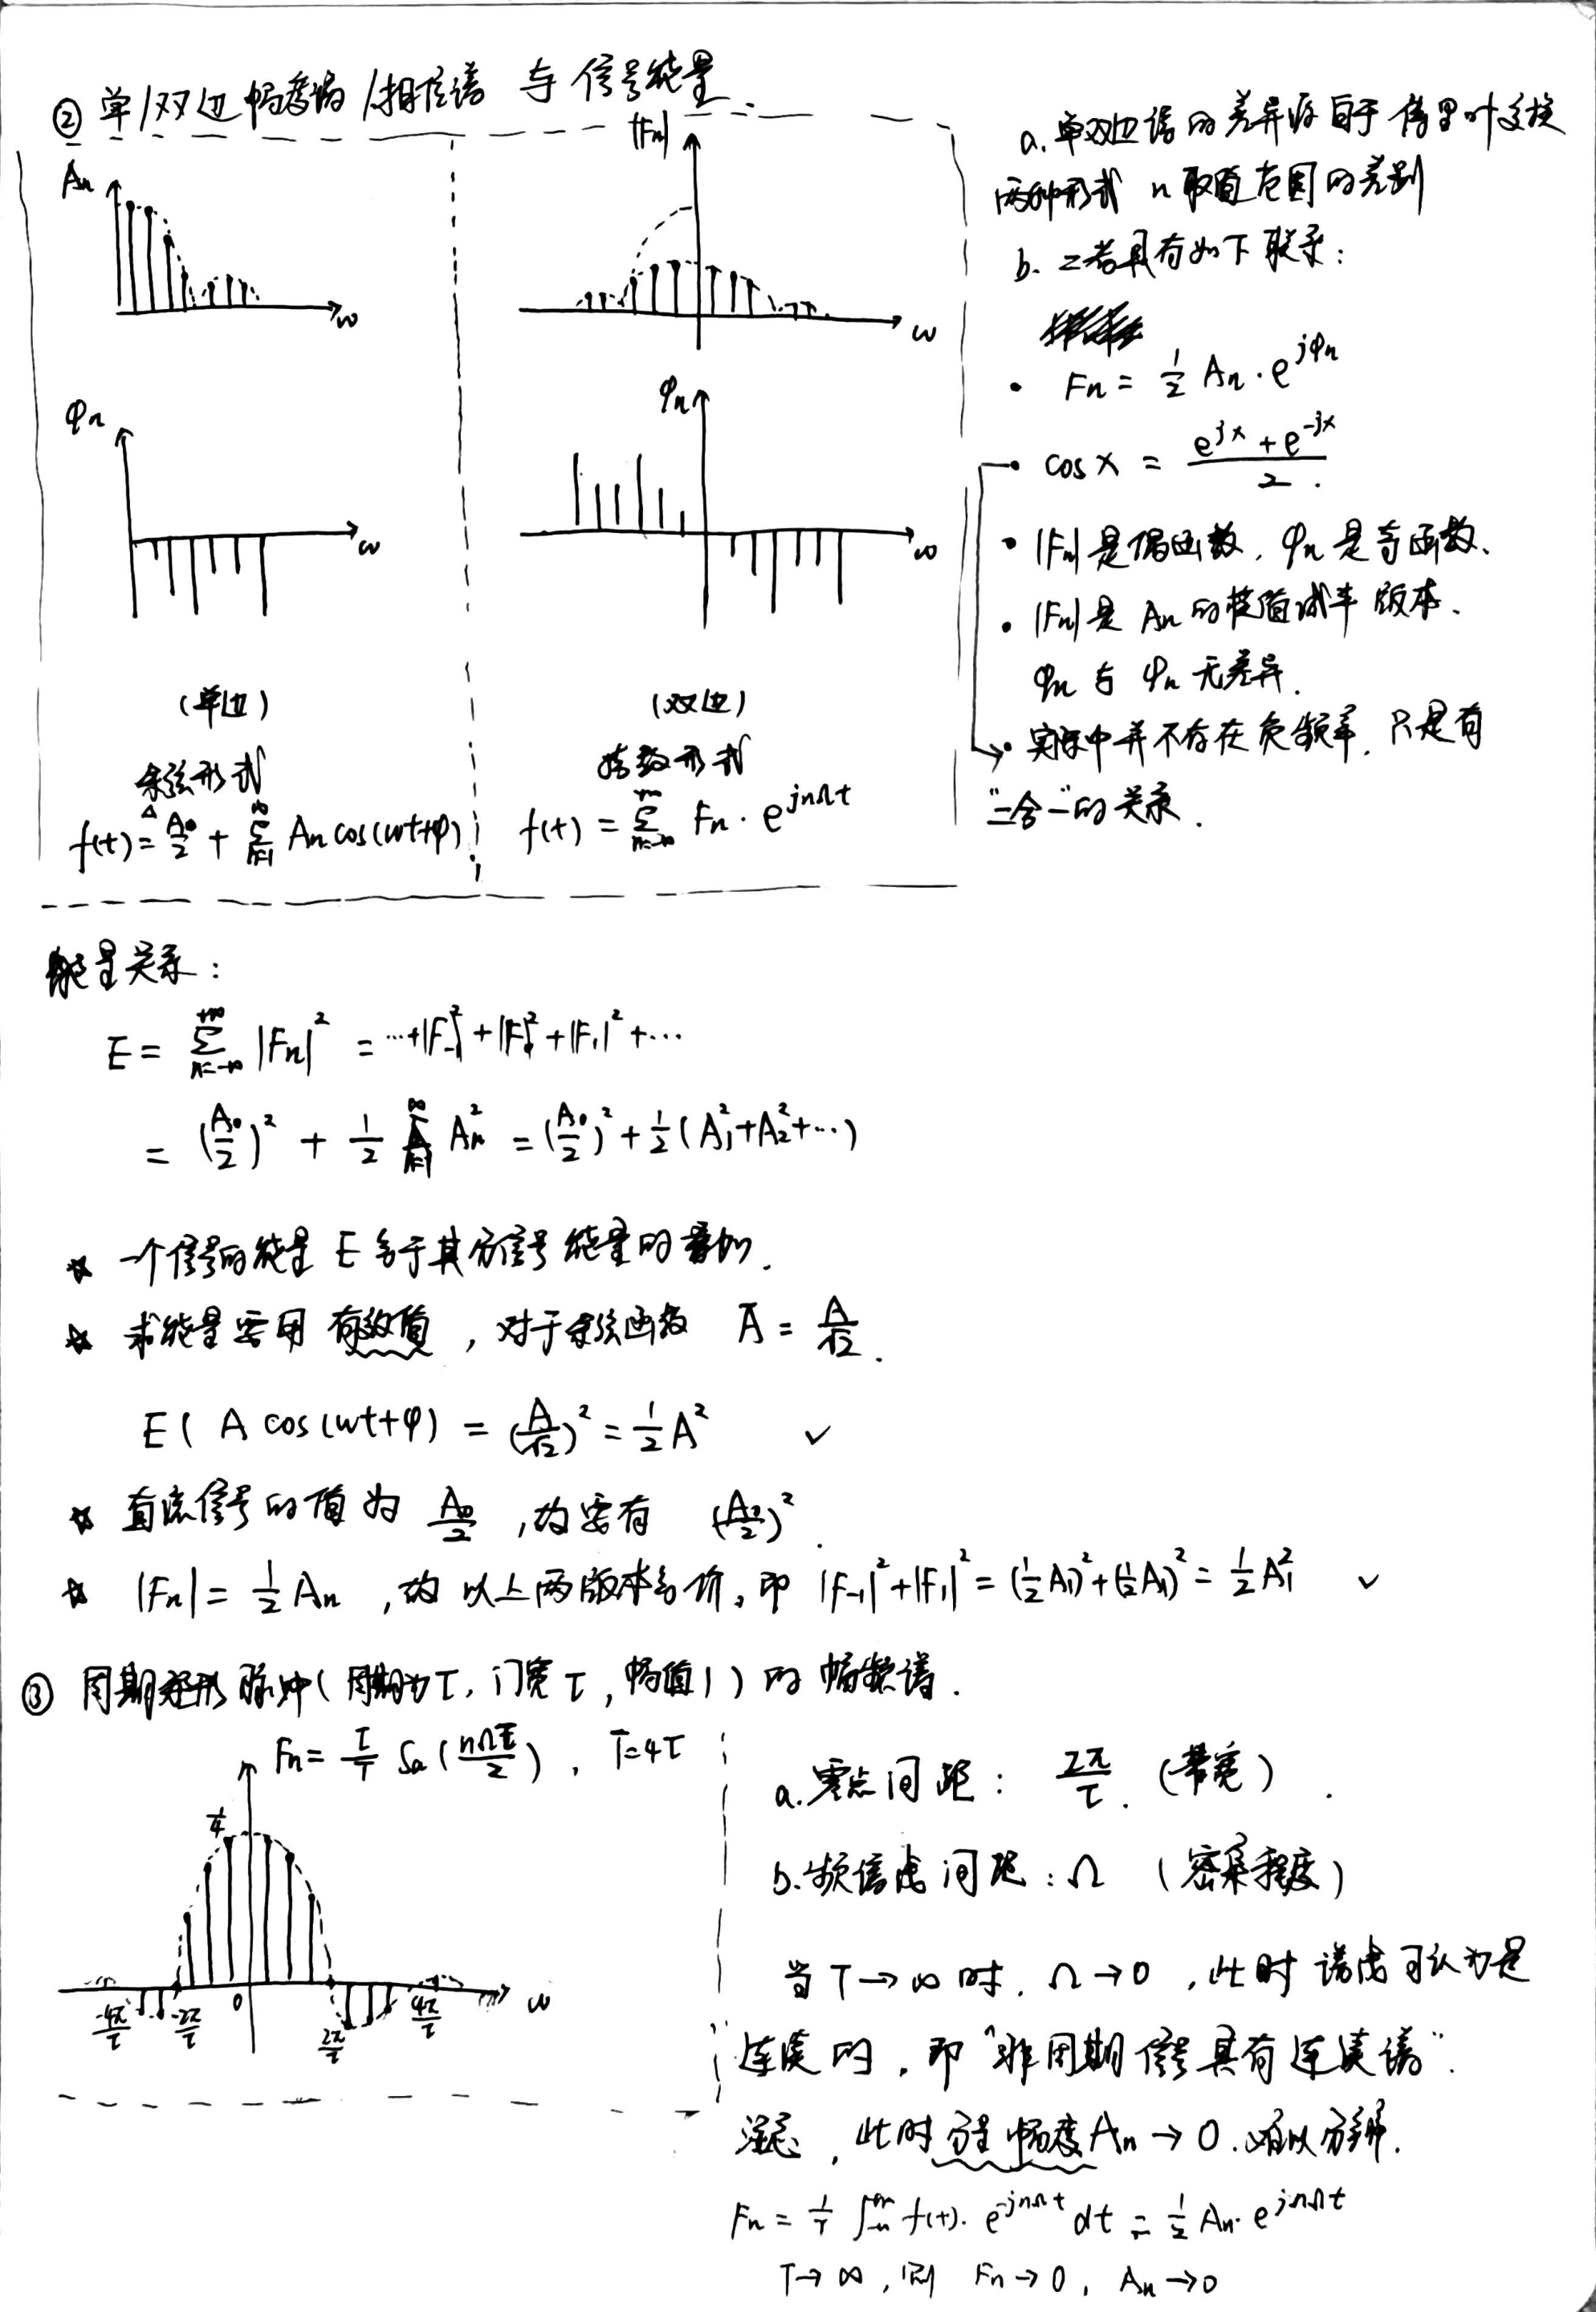 ② 单/双边幅度谱/相位谱 与 信号能量.
An
ω
|Fn|
ω
φn
ω
φn
ω
(单边)
余弦形式
f(t) ≜ A0/2 + ∑_{n=1}^{∞} An cos(ωt+φ)
(双边)
指数形式
f(t) = ∑_{n=-∞}^{+∞} Fn · e^{jnΩt}
a. 单双边谱的差异源自于 傅里叶变换
两种形式 n 取值范围的差别
b. 二者具有如下联系:
• Fn = 1/2 An · e^{jφn}
• cos x = (e^{jx} + e^{-jx})/2 .
• |Fn| 是偶函数, φn 是奇函数.
• |Fn| 是 An 的模值减半 版本.
φn 与 φn 无差异.
• 实际中并不存在负频率, 只是有
"二合一"的关系.
能量关系:
E = ∑_{n=-∞}^{+∞} |Fn|² = ···+|F-1|²+|F0|²+|F1|²+···
= (A0/2)² + 1/2 ∑_{n=1}^{∞} An² = (A0/2)² + 1/2 (A1²+A2²+···)
☆ 一个信号的能量 E 等于其分信号能量的叠加.
☆ 求能量要用 有效值, 对于余弦函数 Ā = A/√2 .
E( A cos(ωt+φ) = (A/√2)² = 1/2 A² ✓
☆ 直流信号的值为 A0/2 , 故要有 (A0/2)² .
☆ |Fn| = 1/2 An , 故 以上两版本等价, 即 |F-1|²+|F1|² = (1/2 A1)²+(1/2 A1)² = 1/2 A1² ✓
③ 周期矩形脉冲( 周期为T, 门宽τ, 幅值1 ) 的 幅频谱.
Fn = τ/T Sa(nΩτ/2) , T=4τ
1/4
-4π/τ
-2π/τ
0
2π/τ
4π/τ
ω
a. 零点间距: 2π/τ . (带宽) .
b. 频谱点间距: Ω (密集程度)
当 T→∞ 时, Ω→0 , 此时 谱点可认为是
连续的, 即 "非周期信号具有连续谱".
注意, 此时分量幅度An→0, 难以分辨.
Fn = 1/T ∫_{-∞}^{∞} f(t)· e^{-jnΩt} dt = 1/2 An· e^{jnΩt}
T→∞ , 则 Fn→0, An→0